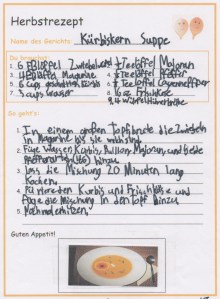 Herbstrezept
Name des Gerichts: Kürbiskern Suppe
Du brauchst:
1. 6 Eßlöffel Zwiebelwürfel ½ Teelöffel Majoran
2. 4 Eßlöffel Margarine ¼ Teelöffel Pfeffer
3. 6 cups Kürbis ½ Teelöffel Cayennepfeffer
4. 3 cups Wasser 16 oz Frischkäse
9. 4 Würfel Hühnerbrühe
So geht's:
1. In einem großen Topf brate die Zwiebeln
in Margarine bis sie
2. Füge Wasser, Kürbis, Bullion, Majoran, und beide
Pfefferarten hinzu
3. Lass die Mischung 20 Minuten lang
Kochen.
4. Pürieren Kürbis und Frischkäse und
füge die Mischung in den Topf hinzu
5. Nochmal erhitzen,
Guten Appetit!